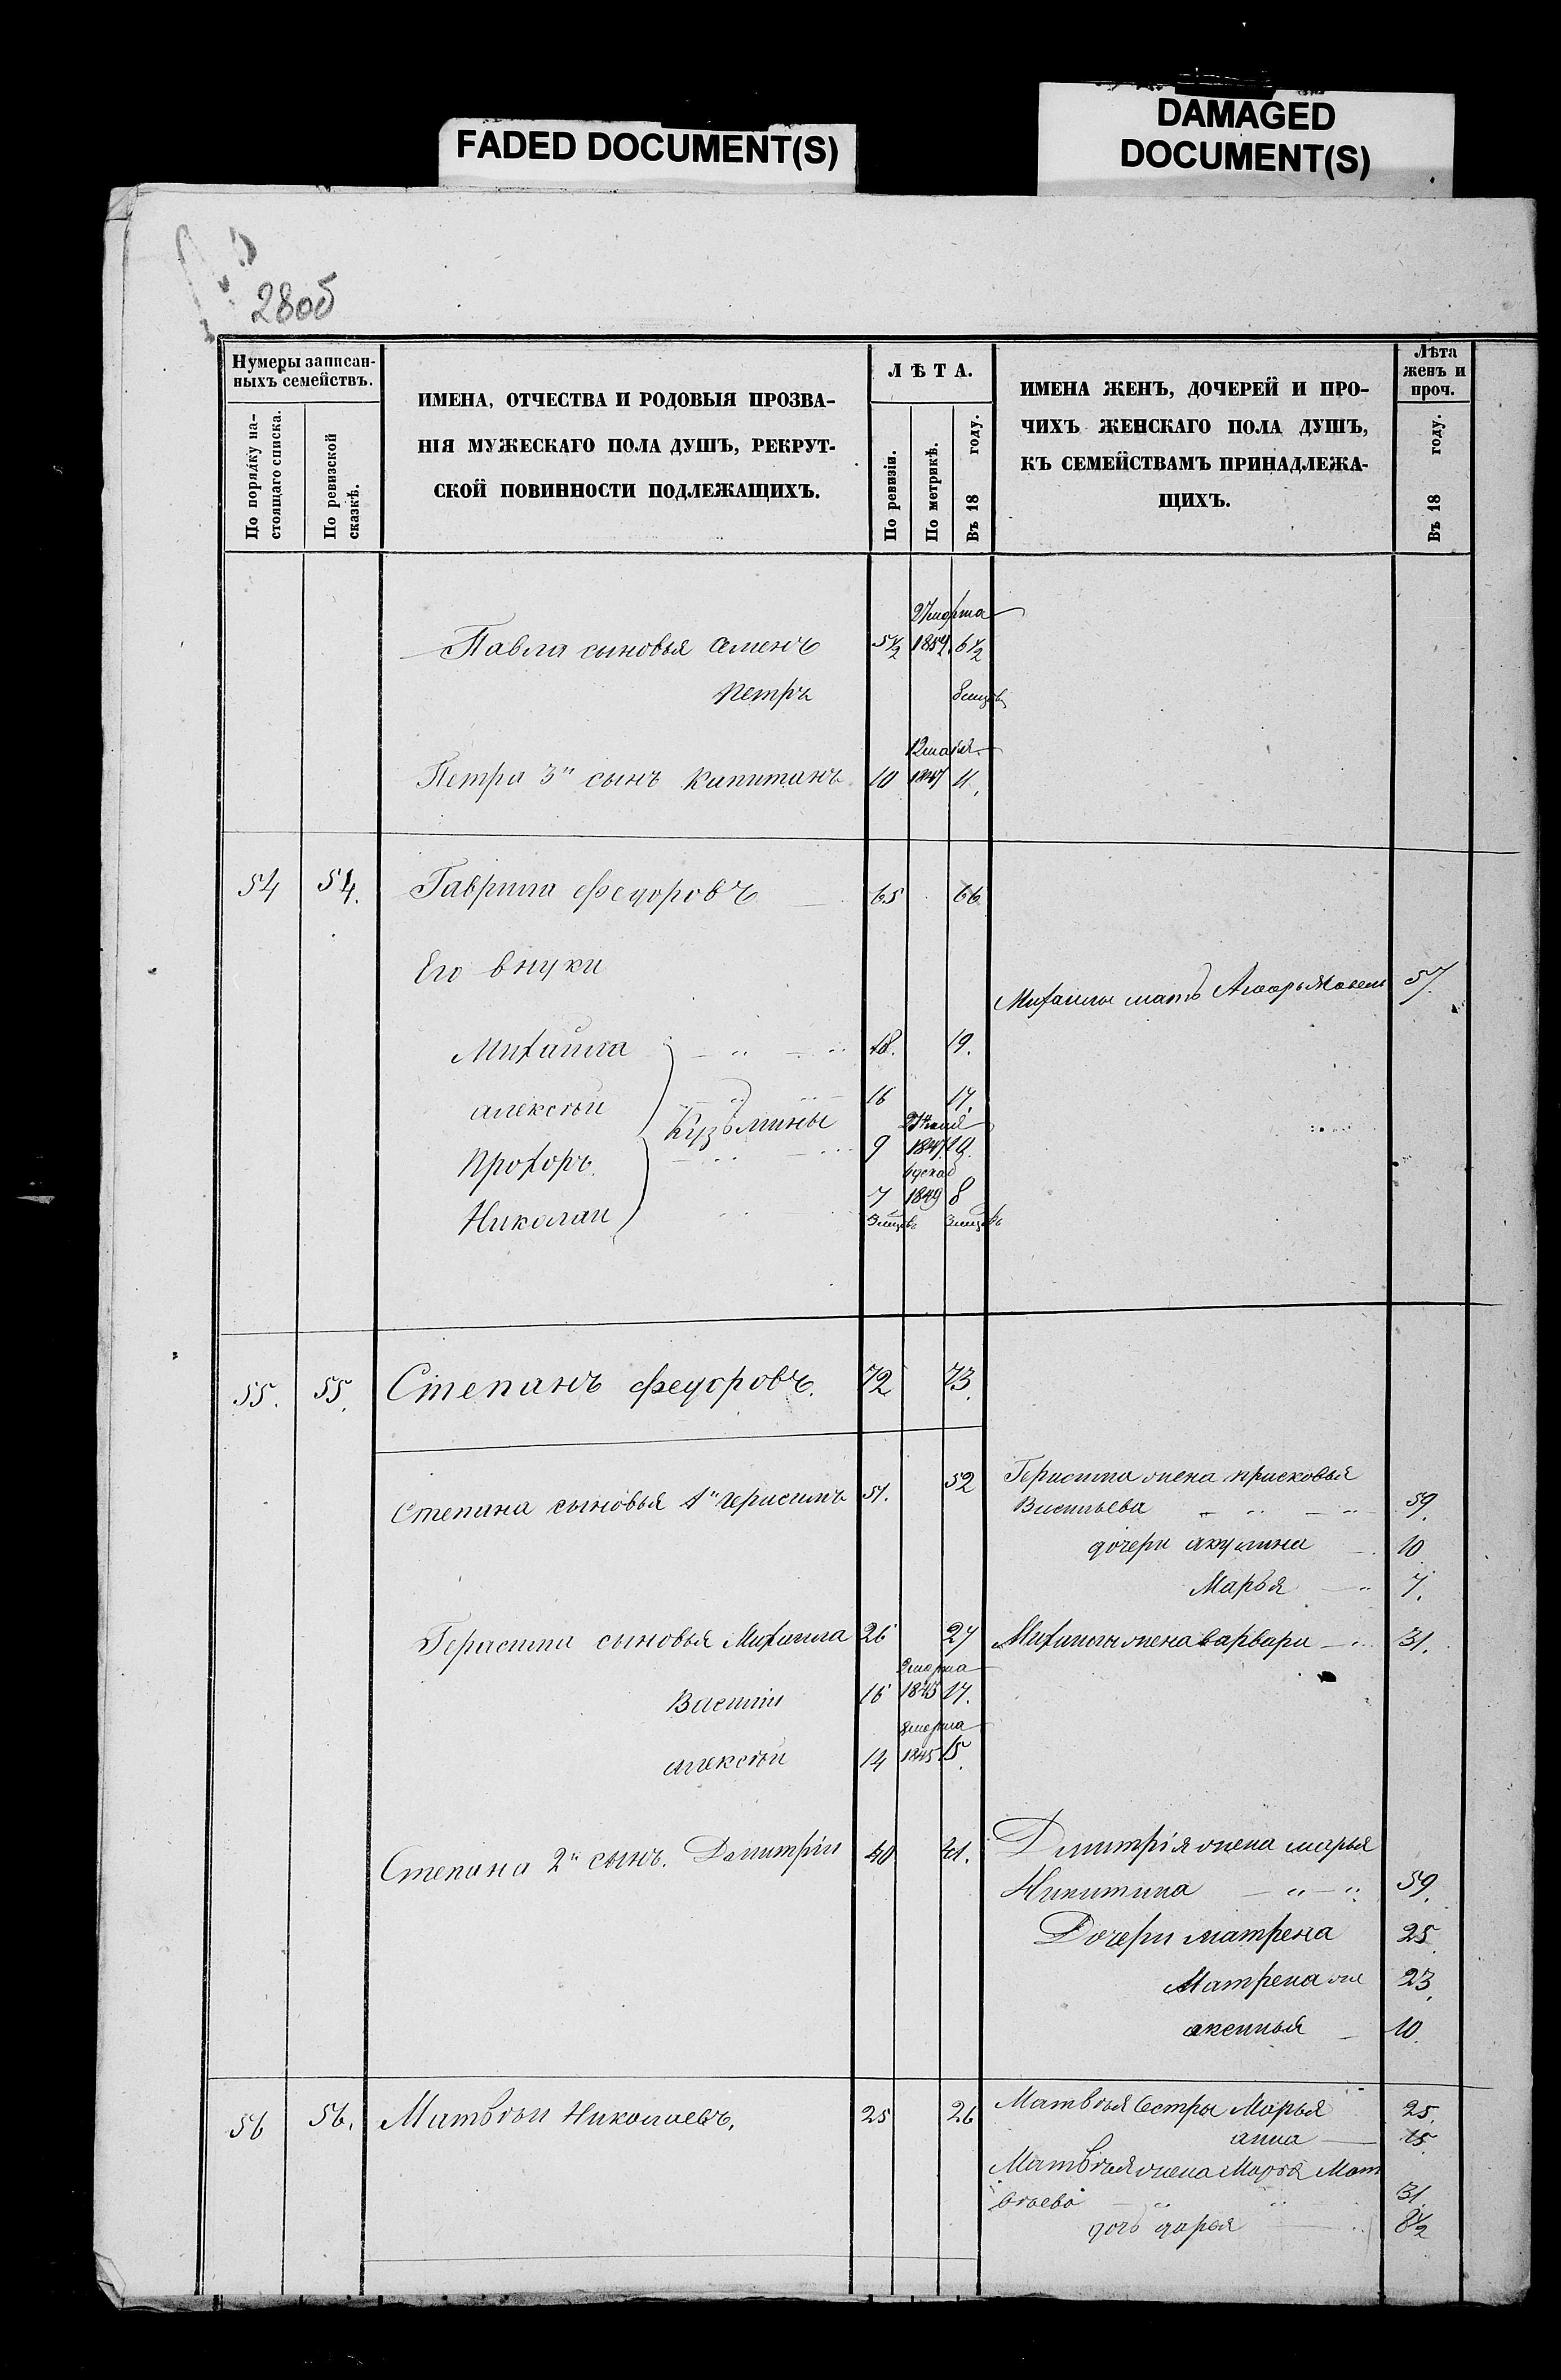 FADED DOCUMENT(S)
DAMAGED
DOCUMENT(S)
28об
Нумеры записан-
ныхъ семействъ.
По порядку на-
стоящаго списка.
По ревизской
сказкѣ.
ИМЕНА, ОТЧЕСТВА И РОДОВЫЯ ПРОЗВА-
НІЯ МУЖЕСКАГО ПОЛА ДУШЪ, РЕКРУТ-
СКОЙ ПОВИННОСТИ ПОДЛЕЖАЩИХЪ.
ЛѢТА.
По ревизіи.
По метрикѣ.
Въ 18 году.
ИМЕНА ЖЕНЪ, ДОЧЕРЕЙ И ПРО-
ЧИХЪ ЖЕНСКАГО ПОЛА ДУШЪ,
КЪ СЕМЕЙСТВАМЪ ПРИНАДЛЕЖА-
ЩИХЪ.
Лѣта
женъ и
проч.
Въ 18 году.
27 марта
Павла сыновья Семенъ 5½ 6½
Петръ
Петра 3й сынъ Капитанъ 10 1847 11.
54 54. Гаврила Федоровъ 65 66
Его внуки
Михайлы мать 57.
Михайла 18. 19.
Алексѣй 16 17.
Кузьмины
Прохоръ 9 1847
7 1849 8
Николай
55. 55. Степанъ Федоровъ. 72 73.
Степана сыновья 1й Герасимъ 51. 52 Герасима жена Прасковья
Васильева 59.
дочери Акулина 10
Марья 7.
Герасима сыновья Михайла 26 27 Михайлы жена Варвара 31.
2 марта
Василій 16 1843 17.
8 марта
Алексѣй 14 1845 15.
Степана 2й сынъ. Дмитрій 40 41. Дмитрія жена Марья
Никитина 59.
Дочери Матрена 25.
Матрена 23.
Аксинья 10.
56 56. Матвѣй Николаевъ. 25 26 Матвѣя Сестры Марья 25.
Анна 15.
Матвѣя жена Марья Мат
вѣева 31.
дочь Дарья 8½